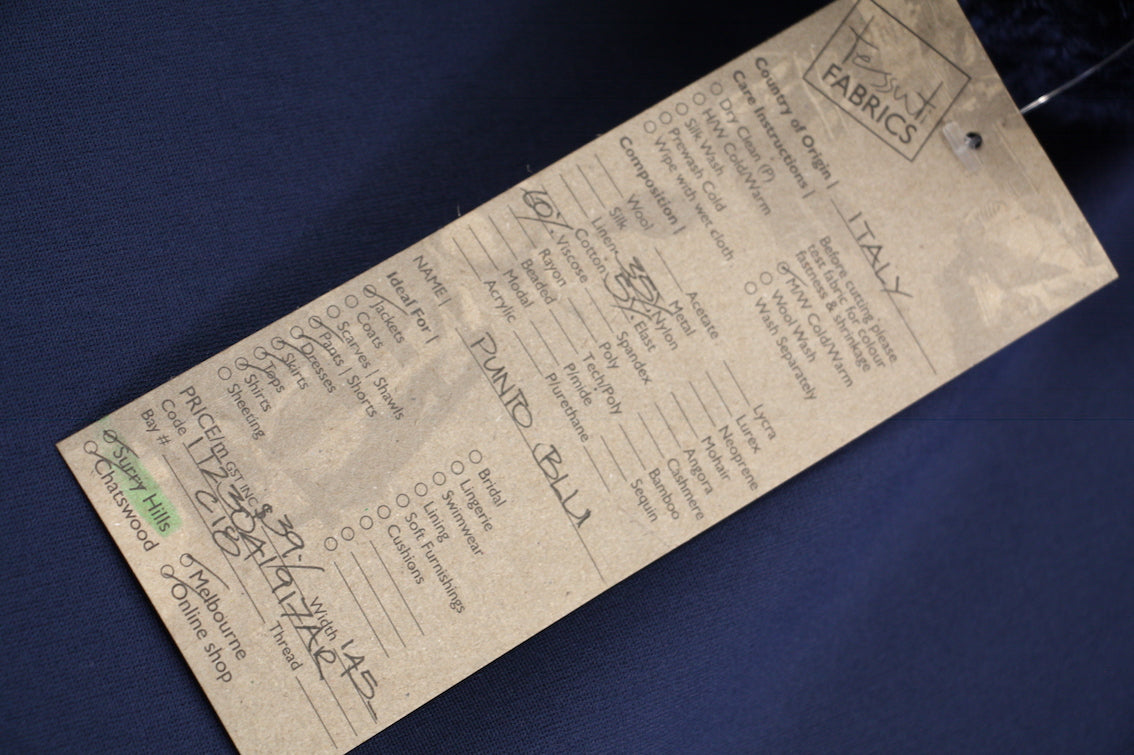 tessuti
FABRICS
Country of Origin | ITALY
Care Instructions |
Before cutting please
test fabric for colour
fastness & shrinkage
Dry Clean (P)
H/W Cold/Warm
Silk Wash
Prewash Cold
Wipe with wet cloth
M/W Cold/Warm
Wool Wash
Wash Separately
Composition |
Wool
Silk
Linen
Cotton
60% Viscose
Rayon
Beaded
Modal
Acrylic
Acetate
Metal
35% Nylon
5% Elast
Spandex
Poly
Tech/Poly
P/mide
P/urethane
Lycra
Lurex
Neoprene
Mohair
Angora
Cashmere
Bamboo
Sequin
NAME | PUNTO BLU
Ideal For |
Jackets
Coats
Scarves | Shawls
Pants | Shorts
Dresses
Skirts
Tops
Shirts
Sheeting
Bridal
Lingerie
Swimwear
Lining
Soft Furnishings
Cushions
PRICE/m GST INC $39./ Width 145
Code
Bay # C18 Thread
Surry Hills
Chatswood
Melbourne
Online shop